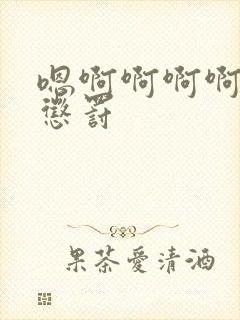 嗯啊啊啊啊
惩罚
果茶爱清酒